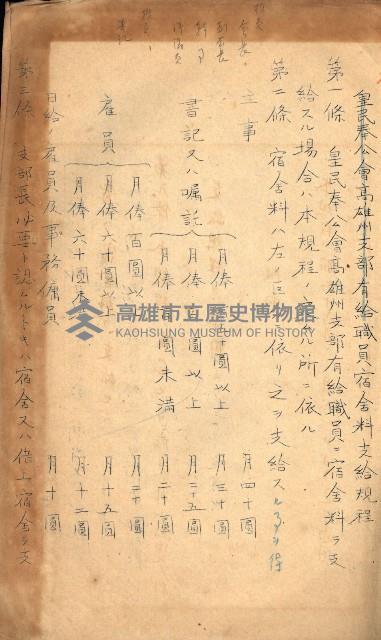 皇民奉公會高雄州支部有給職員宿舍料支給規程
第一條 皇民奉公會高雄州支部有給職員ニ宿舍料ヲ支
給スル場合ハ本規程ノ定ムル所ニ依ル
第二條 宿舍料ハ左ノ區分ニ依リ之ヲ支給スルコトヲ得
主事 月四十圓
書記又ハ囑託
月俸 十圓以上 月三十圓
月俸 圓以上 月二十五圓
月俸 圓未滿 月二十圓
雇員
月俸百圓以上 月二十圓
月俸六十圓以上 月十五圓
月俸六十圓未滿 月十二圓
日給ノ雇員及事務傭員 月十圓
第三條 支部長ハ必要ト認ムルトキハ宿舍又ハ借上宿舍ヲ支
高雄市立歷史博物館
KAOHSIUNG MUSEUM OF HISTORY